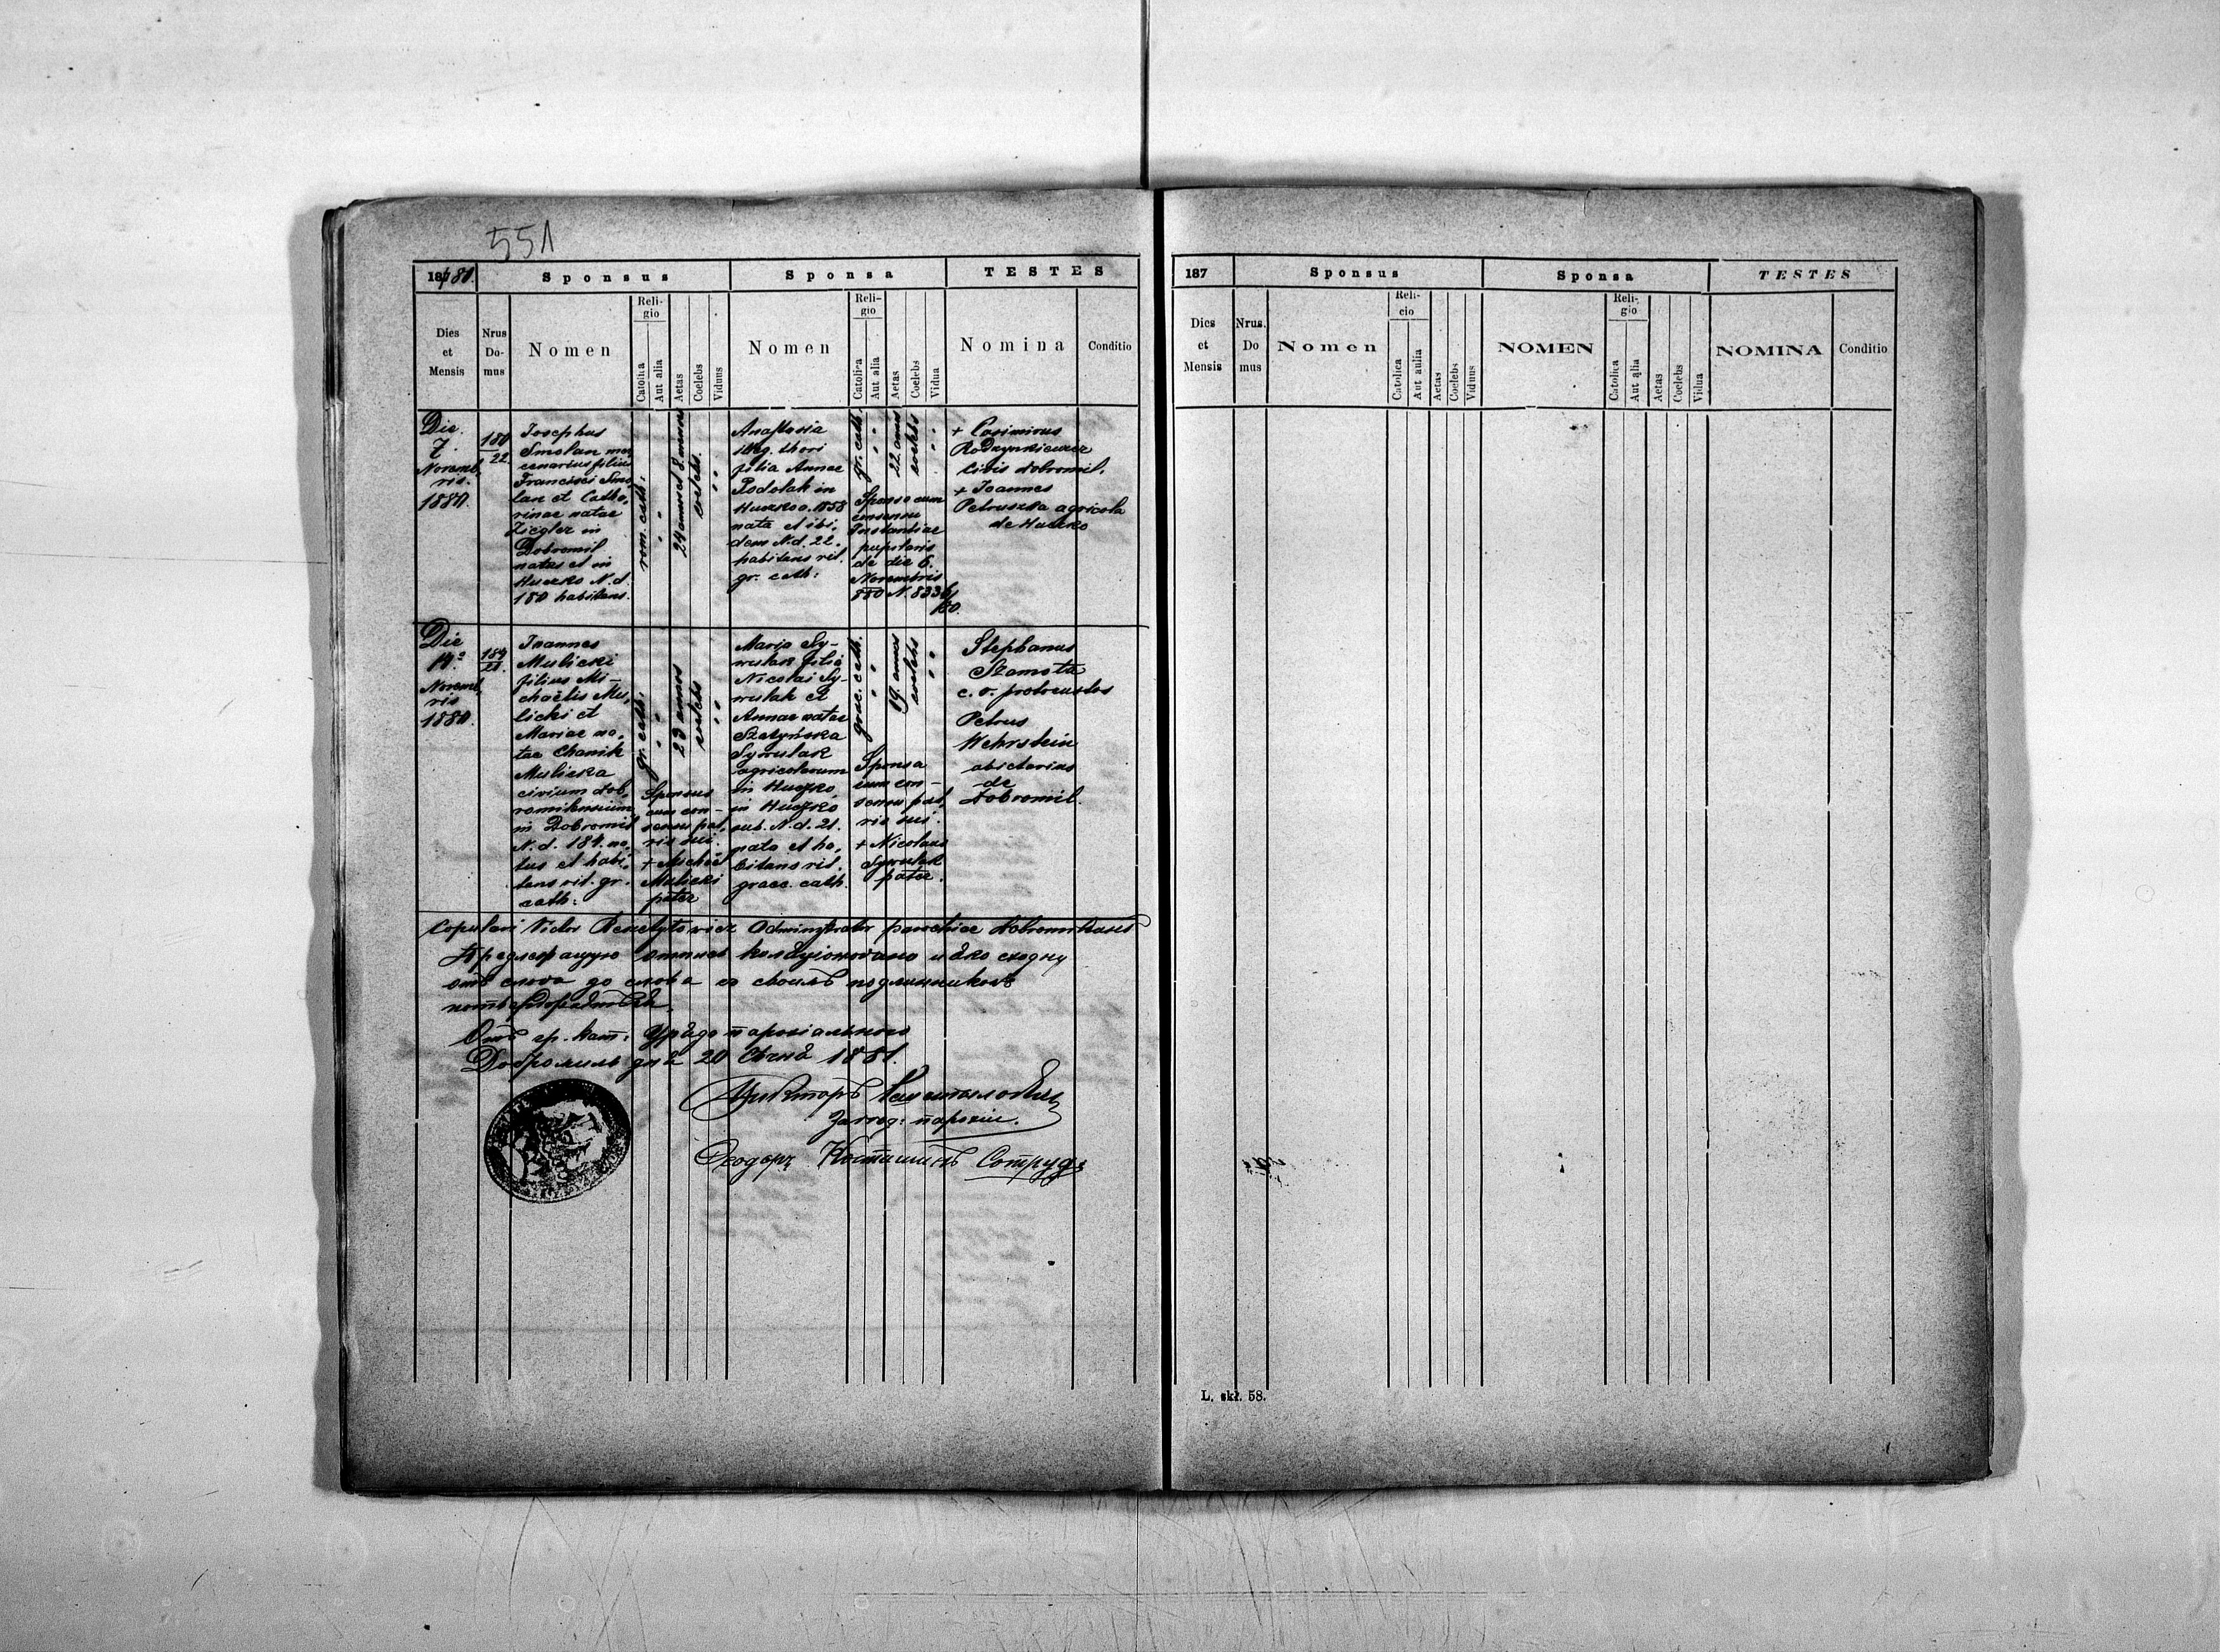 551
1880.
Sponsus
Sponsa
TESTES
Dies et Mensis
Nrus Domus
Nomen
Religio
Catolica
Aut alia
Aetas
Coelebs
Viduus
Nomen
Religio
Catolica
Aut alia
Aetas
Coelebs
Vidua
Nomina
Conditio
Die
7
Novemb,
ris.
1880.
180
22.
Josephus
Smolan mer
cenarius filius
Francisci Smo
lan et Catha,
rinae natae
Ziegler in
Dobromil
natus et in
Huczko N.d.
180 habitans.
rom. cath.
24 annos 8 menses
coelebs
Anastasia
illeg. thori
filia Annae
Podolak in
Huczko a. 1858
nata et ibi,
dem N.d. 22.
habitans rit.
gr. cath:
gr. cath.
22 annos
coelebs
Sponsa cum
consensu
Instantiae
pupilaris
de die 6.
Novembris
880 N. 8336/
880.
+ Casimirus
civis dobromil.
+ Joannes
Petruszka agricola
de Huczko
Die
14ª
Novemb,
ris
1880.
184
21.
Joannes
Mulicki
filius Mi-
chaëlis Mu,
licki et
Mariae na,
tae Chanik
Mulicka
civium dob,
romilensium
in Dobromil
N.d. 184. na,
tus et habi,
tans rit. gr.
cath:
gr. cath.
23 annos
coelebs
Sponsus
cum con-
sensu pat,
ris sui.
+ Michaël
Mulicki
pater
Maria Sy-
wulak filia
Nicolai Sy-
wulak et
Annae natae
Szatyńska
Sywulak
agricolarum
in Huczko,
in Huczko
sub. N.d. 21.
nata et ha,
bitans rit.
graec. cath.
graec. cath.
19 annos
coelebs
Sponsa
cum con-
sensu pat,
ris sui.
+ Nicolaus
Sywulak
pater.
Stephanus
Szamota
c. r.
Petrus
Wehrstein
de
Dobromil.
Copulavi Victor Administrator parochiae Dobromilensis
отпись
отъ слова до слова со своимъ подлинникомъ
Отъ гр. кат: Уряда парохіального
Добромиль дня 20 Січня 1881.
Викторъ
Завѣд: парохіи.
Сотруд:
187
Sponsus
Sponsa
TESTES
Dies et Mensis
Nrus. Do mus
Nomen
Reli-
cio
Catolica
Aut aulia
Aetas
Coelebs
Viduus
NOMEN
Reli-
gio
Catolica
Aut alia
Aetas
Coelebs
Vidua
NOMINA
Conditio
L. skł. 58.